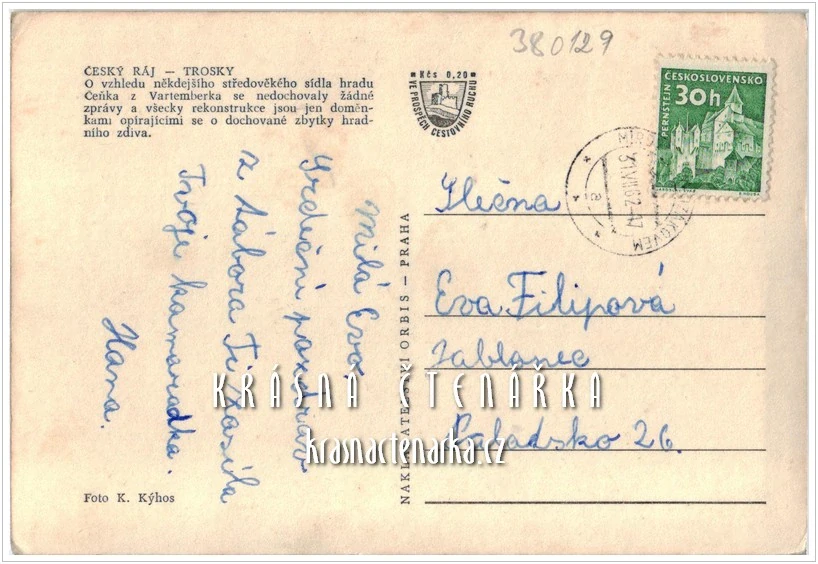 380129
ČESKÝ RÁJ — TROSKY
O vzhledu někdejšího středověkého sídla hradu
Čeňka z Vartemberka se nedochovaly žádné
zprávy a všecky rekonstrukce jsou jen doměn-
kami opírajícími se o dochované zbytky hrad-
ního zdiva.
Kčs 0,20
VE PROSPĚCH CESTOVNÍHO RUCHU
ČESKOSLOVENSKO
30h
PERNŠTEJN
31.VII.62-17
a
Milá Evo.
Srdečni pozdrav
z tábora Ti zasila
Tvoje kamaradka.
Hana.
NAKLADATELSTVÍ ORBIS — PRAHA
Slečna
Eva Filipová
Jablonec
Palackého 26.
KRÁSNÁ ČTENÁŘKA
krasnactenarka.cz
Foto K. Kýhos